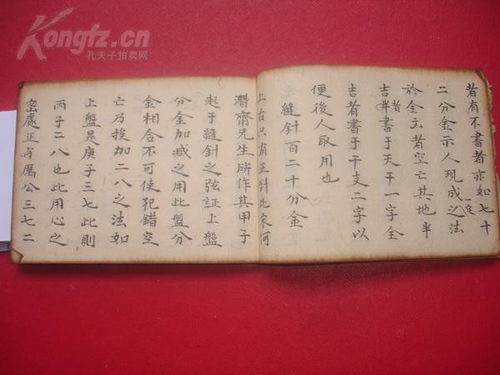 Kongfz.cn
孔夫子拍卖网
者有不書者亦如七十
二分金示人現成之法
於全吉者空亡其地半
吉者半書于天干一字全
吉者書于干支二字以
便後人取用也
縫針百二十分金
上古只有正針此朱何
潛齋先生所作其甲子
起于縫針之弦証上盤
分金加減之用此盤分
金相合不可使犯錯空
亡乃挨加二八之法如
上盤是庚子三七此則
丙子二八也此用心之
密處正與厲公三七二